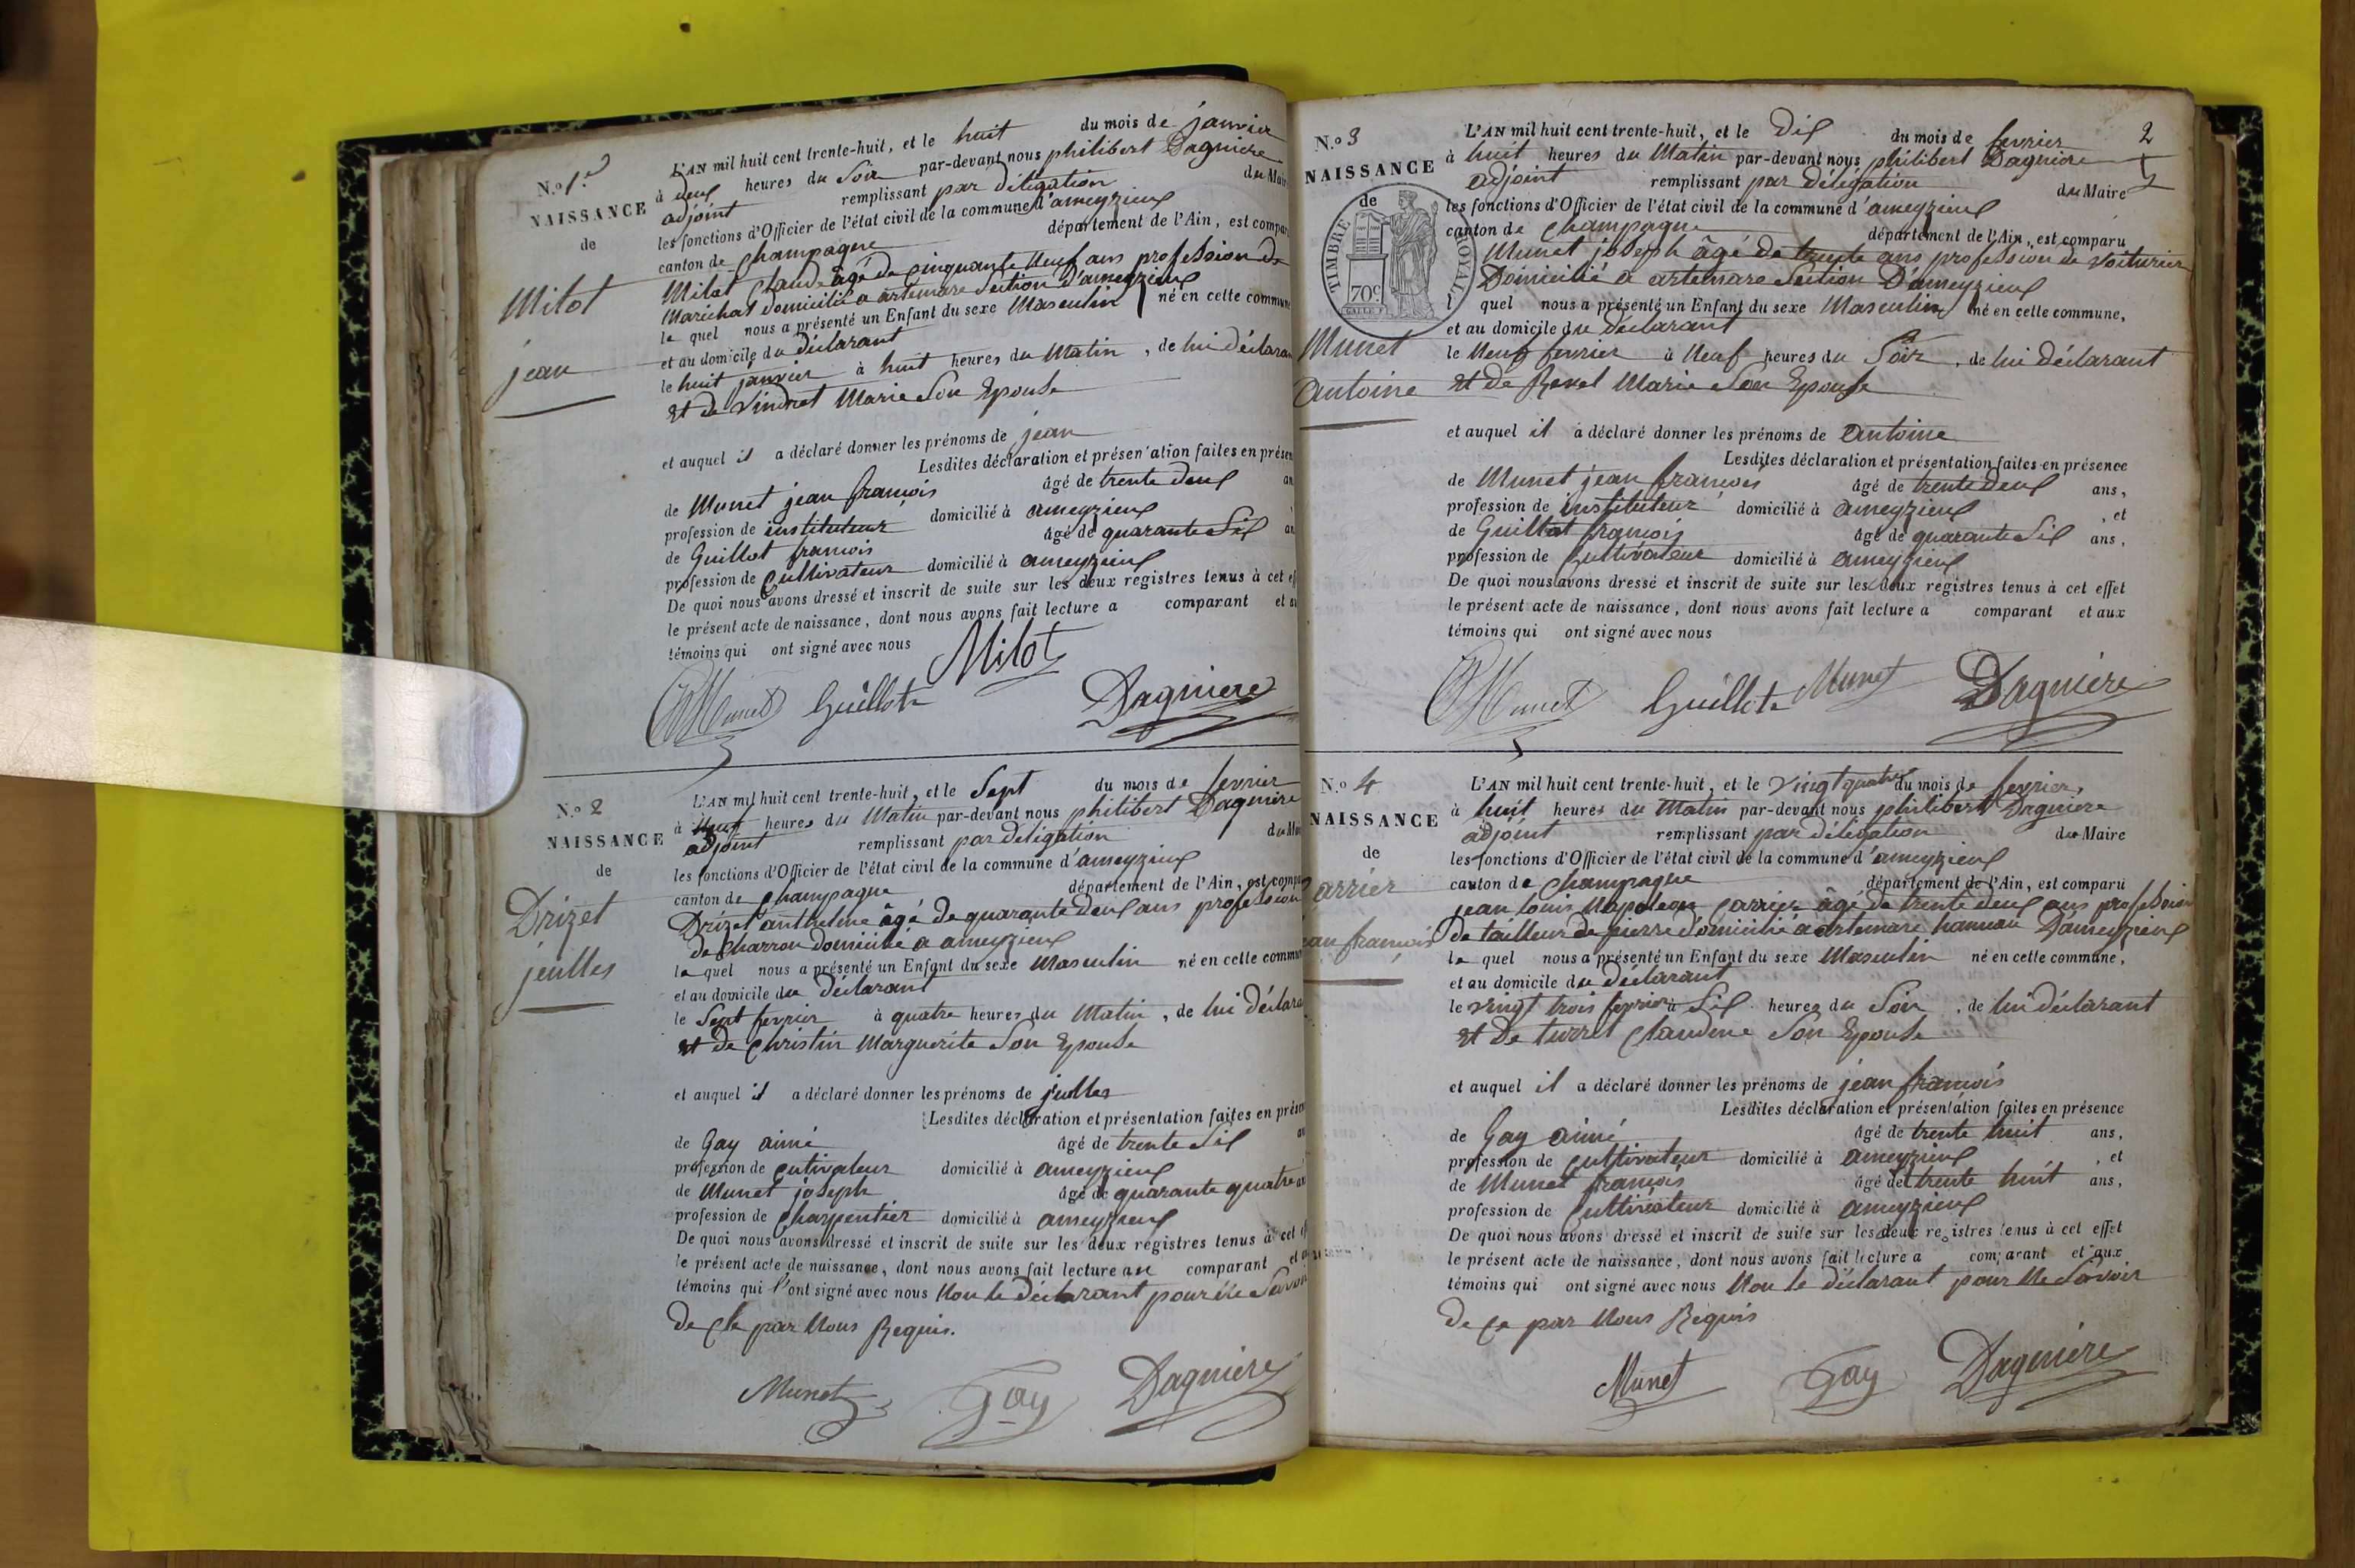 N.º 1.er
NAISSANCE
de
Milot
jean
L'AN mil huit cent trente-huit, et le huit du mois de janvier
à deux heures du Soir par-devant nous philibert Dagniere
adjoint remplissant par délégation du Mair
les fonctions d'Officier de l'état civil de la commune d'ameyzieux
canton de Champagne département de l'Ain, est compar
Milot Claude âgé de Cinquante Neuf ans profession de
Maréchal domicilié a artemare Section D'ameyzieux
le quel nous a présenté un Enfant du sexe Masculin né en cette commune
et au domicile du déclarant
le huit janvier à huit heures du Matin, de lui déclaran
et de Vindret Marie Son Epouse
et auquel il a déclaré donner les prénoms de jean
Lesdites déclaration et présentation faites en présen
de Munet jean françois âgé de trente deux an
profession de instituteur domicilié à ameyzieux
de Guillot françois âgé de quarante Six an
profession de Cultivateur domicilié à ameyzieux
De quoi nous avons dressé et inscrit de suite sur les deux registres tenus à cet ef
le présent acte de naissance, dont nous avons fait lecture a comparant et a
témoins qui ont signé avec nous
Milot
Munet Guillot Dagniere
N.º 2
NAISSANCE
de
Drizet
jeulles
L'AN mil huit cent trente-huit, et le Sept du mois de fevrier
à Neuf heures du Matin par-devant nous philibert Dagniere
adjoint remplissant par délégation du Mai
les fonctions d'Officier de l'état civil de la commune d'ameyzieux
canton de Champagne département de l'Ain, est compa
Drizet anthelme âgé de quarante deux ans profession
de Charron domicilié a ameyzieux
le quel nous a présenté un Enfant du sexe Masculin né en cette commun
et au domicile du déclarant
le Sept fevrier à quatre heures du Matin, de lui déclara
et de Christin Marguerite Son Epouse
et auquel il a déclaré donner les prénoms de jeulles
Lesdites déclaration et présentation faites en prése
de Gay aimé âgé de trente Six an
profession de Cutivateur domicilié à ameyzieux
de Munet joseph âgé de quarante quatre an
profession de Charpentier domicilié à ameyzieux
De quoi nous avons dressé et inscrit de suite sur les deux registres tenus à cet ef
le présent acte de naissance, dont nous avons fait lecture au comparant et a
témoins qui l'ont signé avec nous Non le déclarant pour Ne Savoir
de Ce par Nous Requis.
Munet Gay Dagniere
2
N.º 3
NAISSANCE
de
TIMBRE ROYAL
70c
Munet
Antoine
L'AN mil huit cent trente-huit, et le Dix du mois de fevrier
à huit heures du Matin par-devant nous philibert Dagniere
adjoint remplissant par délégation du Maire
les fonctions d'Officier de l'état civil de la commune d'ameyzieux
canton de Champagne département de l'Ain, est comparu
Munet joseph âgé de trente ans profession de Voiturier
Domicilié a artemare Section D'ameyzieux
l quel nous a présenté un Enfant du sexe Masculin né en cette commune,
et au domicile du déclarant
le Neuf fevrier à Neuf heures du Soir, de lui déclarant
et de Revel Marie Son Epouse
et auquel il a déclaré donner les prénoms de Antoine
Lesdites déclaration et présentation faites en présence
de Munet jean françois âgé de trente deux ans,
profession de instituteur domicilié à ameyzieux, et
de Guillot françois âgé de quarante Six ans,
profession de Cultivateur domicilié à ameyzieux
De quoi nous avons dressé et inscrit de suite sur les deux registres tenus à cet effet
le présent acte de naissance, dont nous avons fait lecture a comparant et aux
témoins qui ont signé avec nous
Munet Guillot Munet Dagniere
N.º 4
NAISSANCE
de
Carrier
ean françois
L'AN mil huit cent trente-huit, et le Vingt quatre du mois de fevrier,
à huit heures du Matin par-devant nous philibert Dagniere
adjoint remplissant par délégation du Maire
les fonctions d'Officier de l'état civil de la commune d'ameyzieux
canton de Champagne département de l'Ain, est comparu
jean louis Napoleon Carrier âgé de trente deux ans profession
de tailleur de pierre domicilié a artemare hameau D'ameyzieux
le quel nous a présenté un Enfant du sexe Masculin né en cette commune,
et au domicile du déclarant
le Vingt trois fevrier à Six heures du Soir, de lui déclarant
et De turrel Claudine Son Epouse
et auquel il a déclaré donner les prénoms de jean françois
Lesdites déclaration et présentation faites en présence
de Gay aimé âgé de trente huit ans,
profession de Cultivateur domicilié à ameyzieux, et
de Munet françois âgé de trente huit ans,
profession de Cultivateur domicilié à ameyzieux
De quoi nous avons dressé et inscrit de suite sur les deux registres tenus à cet effet
le présent acte de naissance, dont nous avons fait lecture a comparant et aux
témoins qui ont signé avec nous Non le déclarant pour Ne Savoir
de Ce par Nous Requis
Munet Gay Dagniere